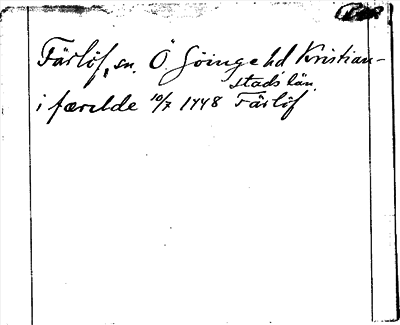 Färlöf, sn. Ö. Göinge hd Kristian-
stads län.
i færelde 10/7 1448 Färlöf